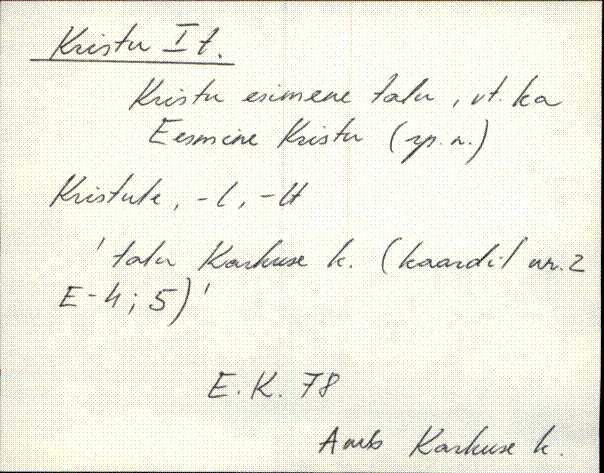 Kristu I t.
Kristu esimene talu, vt. ka
Eesmine Kristu (rp. n.)
Kristule, -l, -lt
' talu Karkuse k. (kaardil nr. 2
E-4; 5) '
E. K. 78
Amb Karkuse k.